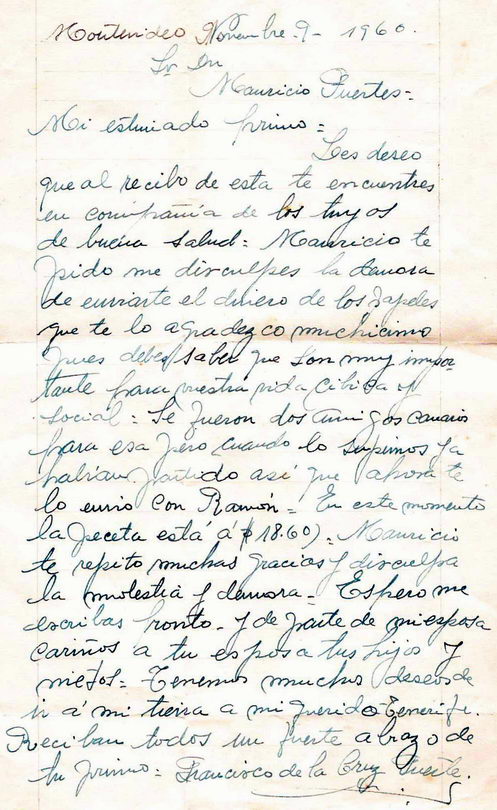 Montevideo Noviembre-9- 1960.
Sr Dn
Mauricio Fuertes=
Mi estimado primo=
Les deseo
que al recibo de esta te encuentres
en compañia de los tuyos
de buena salud= Mauricio te
pido me disculpes la demora
de enviarte el dinero de los papeles
que te lo agradezco muchicimo
pues debes saber que son muy impor-
tante para nuestra vida cibica y
social= Se fueron dos amigos canarios
para esa pero cuando lo supimos ya
habian partido asi que ahora te
lo envio con Ramón= En este momento
la peceta está á $ 18.60)= Mauricio
te repito muchas gracias y disculpa
la molestia y demora= Espero me
escribas pronto- y de parte de mi esposa
cariños a tu esposa tus hijos y
nietos= Tenemos muchos deseos de
ir á mi tierra a mi querido Tenerife.
Reciban todos un fuerte abrazo de
tu primo= Francisco de la Cruz